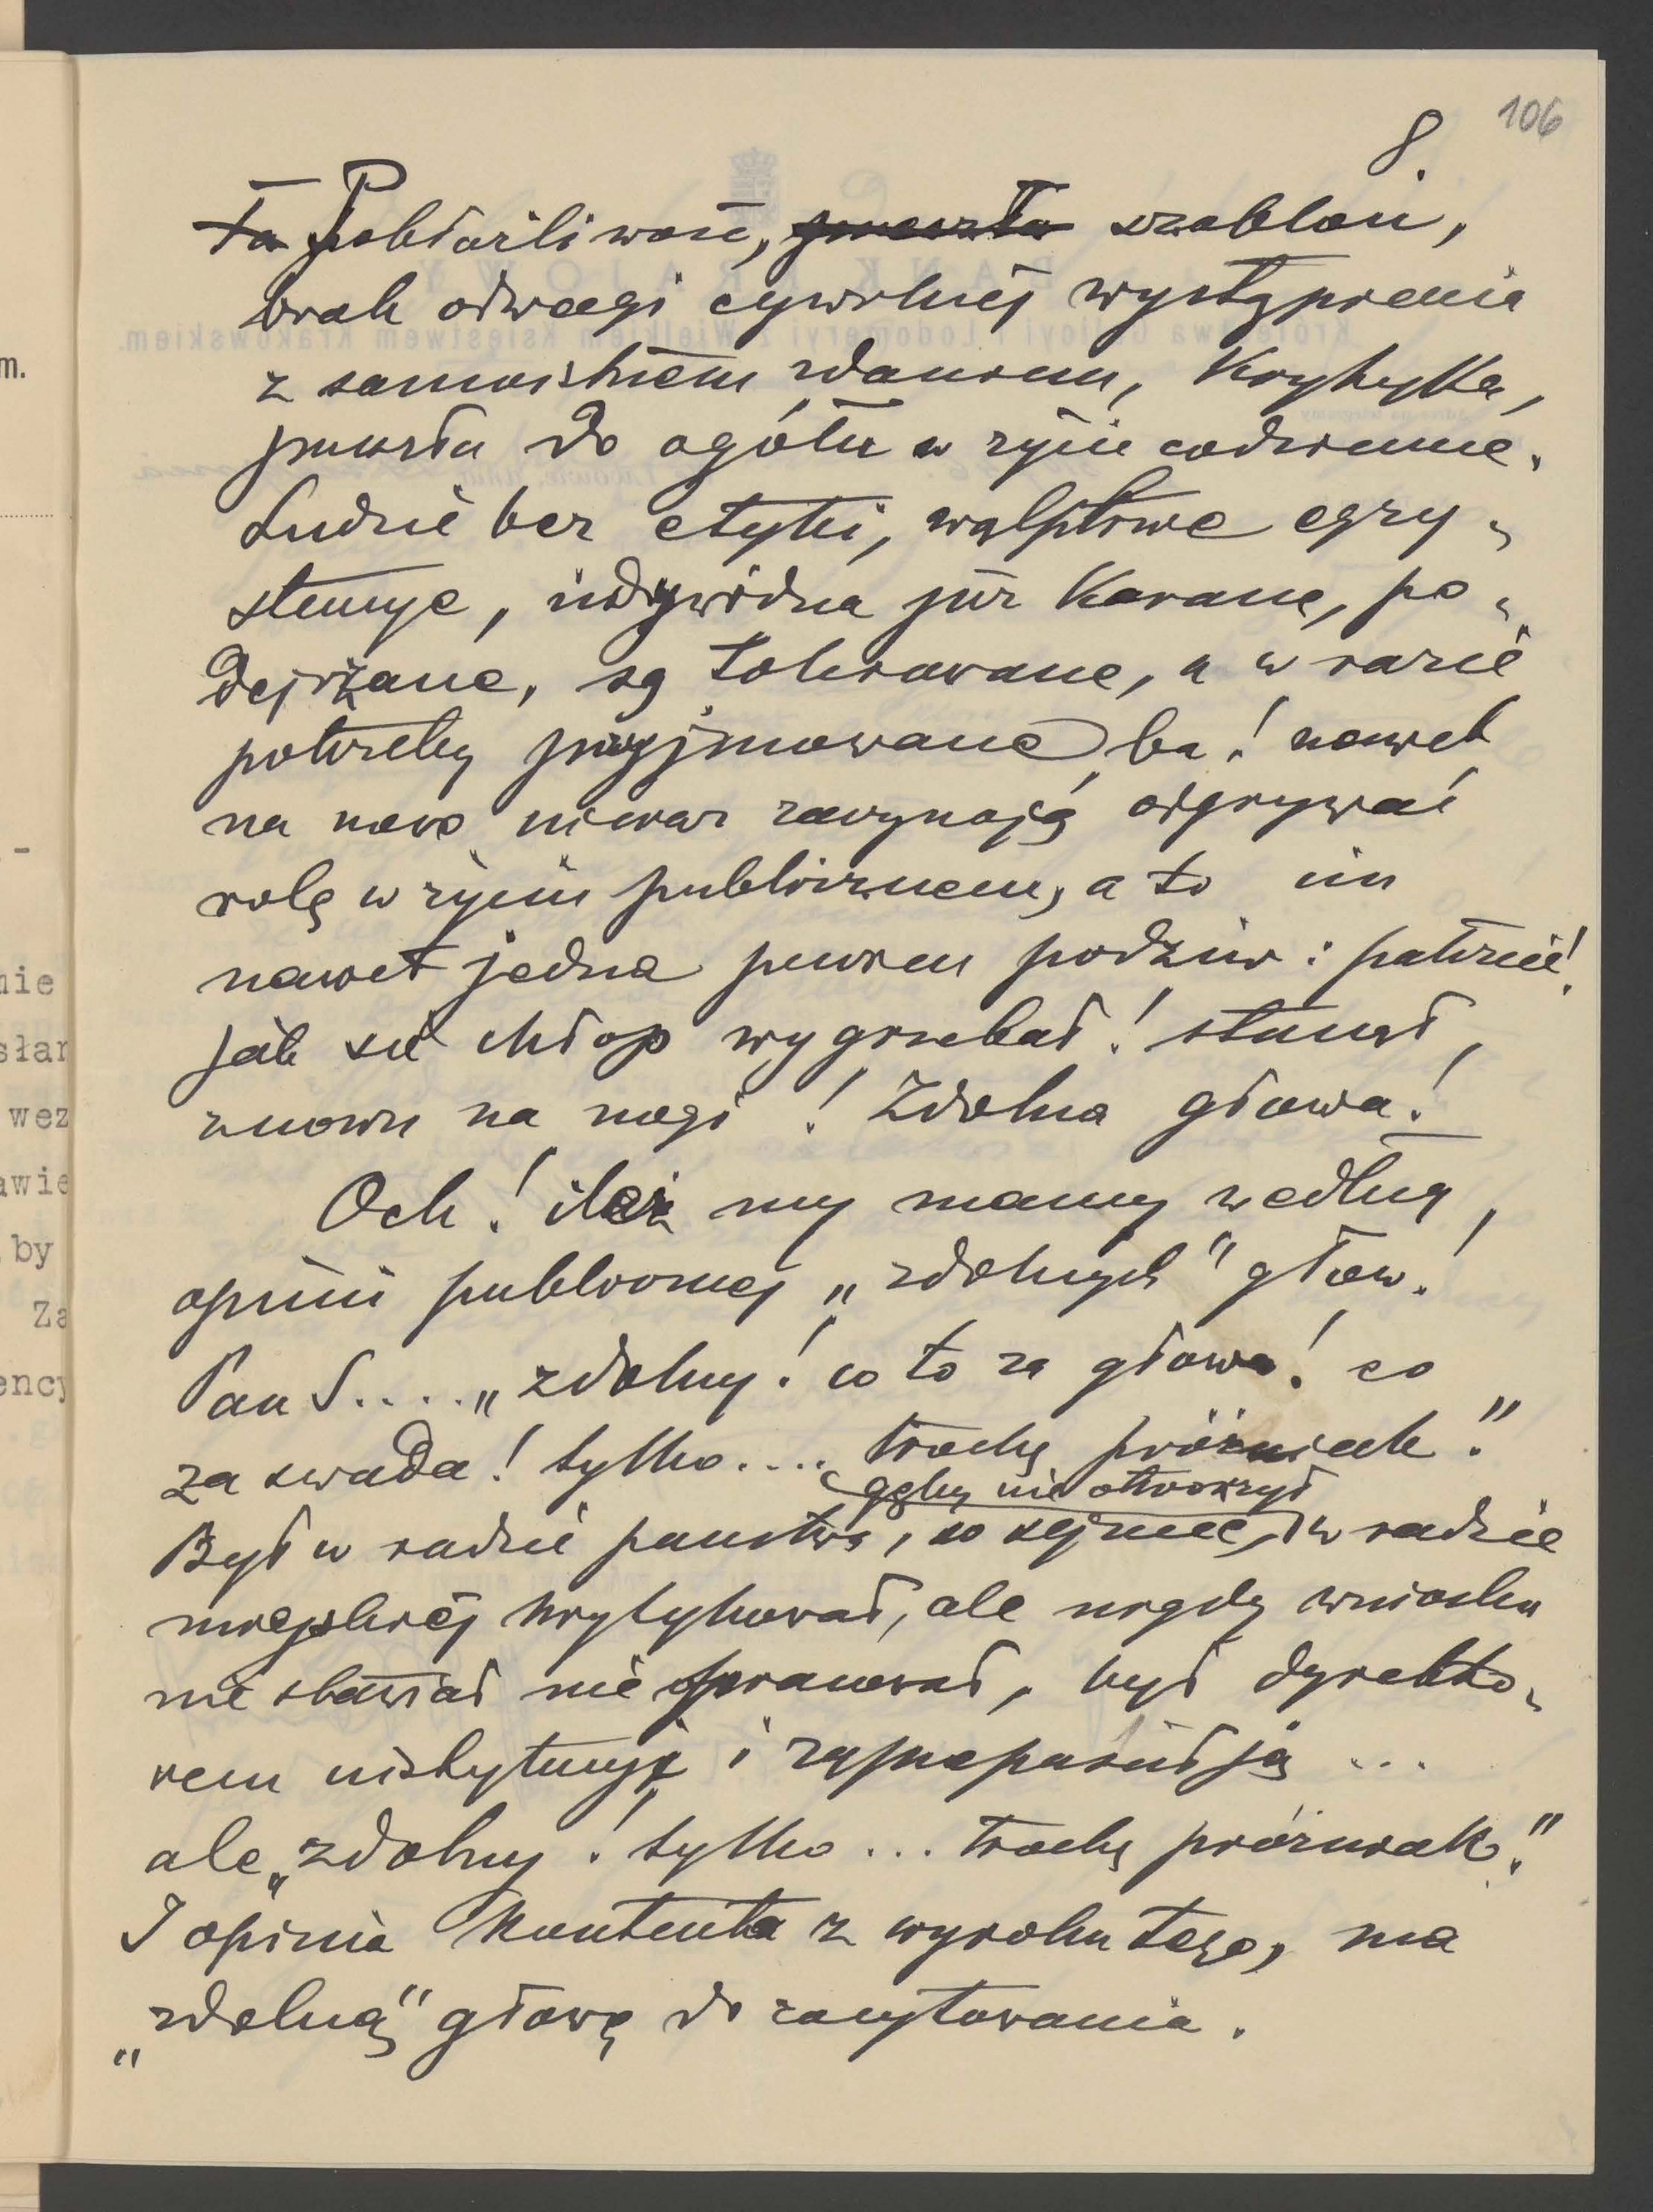 106
8.
Ta Pobłażliwość, zresztą szablon,
brak odwagi cywilnéj wystąpienia
z samoistném zdaniem, krytyką,
przeszła do ogółu w życie codzienne.
Ludzie bez etyki, wątpliwe egzy-
stencye, indywidua już karane, po-
dejrżane, są tolerowane, a w razie
potrzeby przyjmowane ba! nawet
na nowo nieraz zaczynają odgrywać
rolę w życiu publicznem, a to im
nawet jedna pewien podziw: patrzcie!
jak się chłop wygrzebał! stanął,
znowu na nogi! Zdolna głowa!
Och! ileż my mamy według,
opinii publicznej „zdolnych" głów!
Pan S.... „zdolny! co to za głowa! co
za swada! tylko.... trochę próżniak."
gęby nie otworzył
Był w radzie państwa, w sejmie, w radzie
miejskiéj krytykował, ale nigdy wniosku
nie stawiał nie opracował, był dyrekto-
rem instytucyi i zaprzepaścił ją ...
ale „zdolny! tylko ... trochę próżniak."
I opinia kontenta z wyroku tego, ma
„zdolną" głowę do zacytowania.
m.
-
nie
słan
wez
awie
by
Za
ency